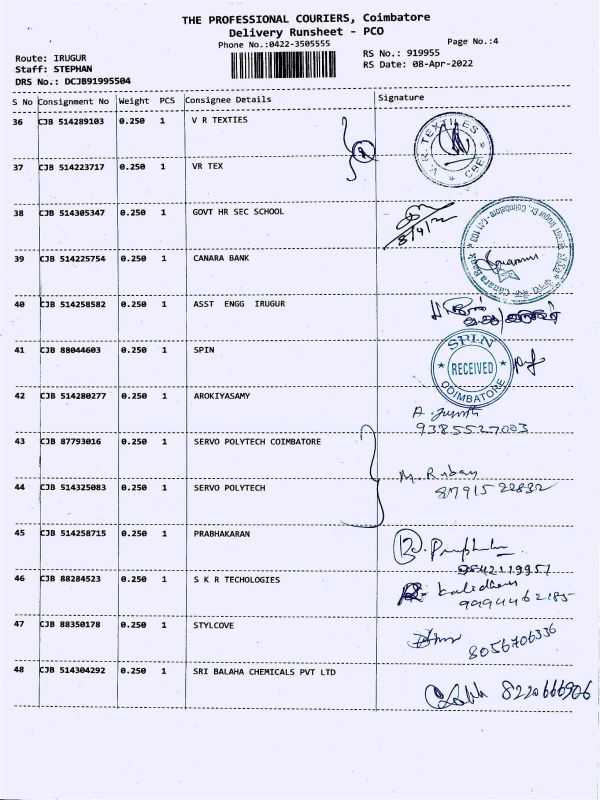 THE PROFESSIONAL COURIERS, Coimbatore
Delivery Runsheet - PCO
Phone No.:0422-3505555
Page No.:4
Route: IRUGUR
RS No.: 919955
Staff: STEPHAN
RS Date: 08-Apr-2022
DRS No.: DCJB91995504
S No Consignment No Weight PCS Consignee Details Signature
36 CJB 514289103 0.250 1 V R TEXTIES
V. R. TEXTILES CBE
37 CJB 514223717 0.250 1 VR TEX
38 CJB 514305347 0.250 1 GOVT HR SEC SCHOOL
8/4/22
39 CJB 514225754 0.250 1 CANARA BANK
Canara Bank
40 CJB 514258582 0.250 1 ASST ENGG IRUGUR
41 CJB 88044603 0.250 1 SPIN
SPIN
RECEIVED
COIMBATORE
42 CJB 514280277 0.250 1 AROKIYASAMY
9385527003
43 CJB 87793016 0.250 1 SERVO POLYTECH COIMBATORE
M. Ruban
44 CJB 514325083 0.250 1 SERVO POLYTECH
8791522832
45 CJB 514258715 0.250 1 PRABHAKARAN
9842119951
46 CJB 88284523 0.250 1 S K R TECHOLOGIES
9994462185
47 CJB 88350178 0.250 1 STYLCOVE
8056706336
48 CJB 514304292 0.250 1 SRI BALAHA CHEMICALS PVT LTD
8220666906